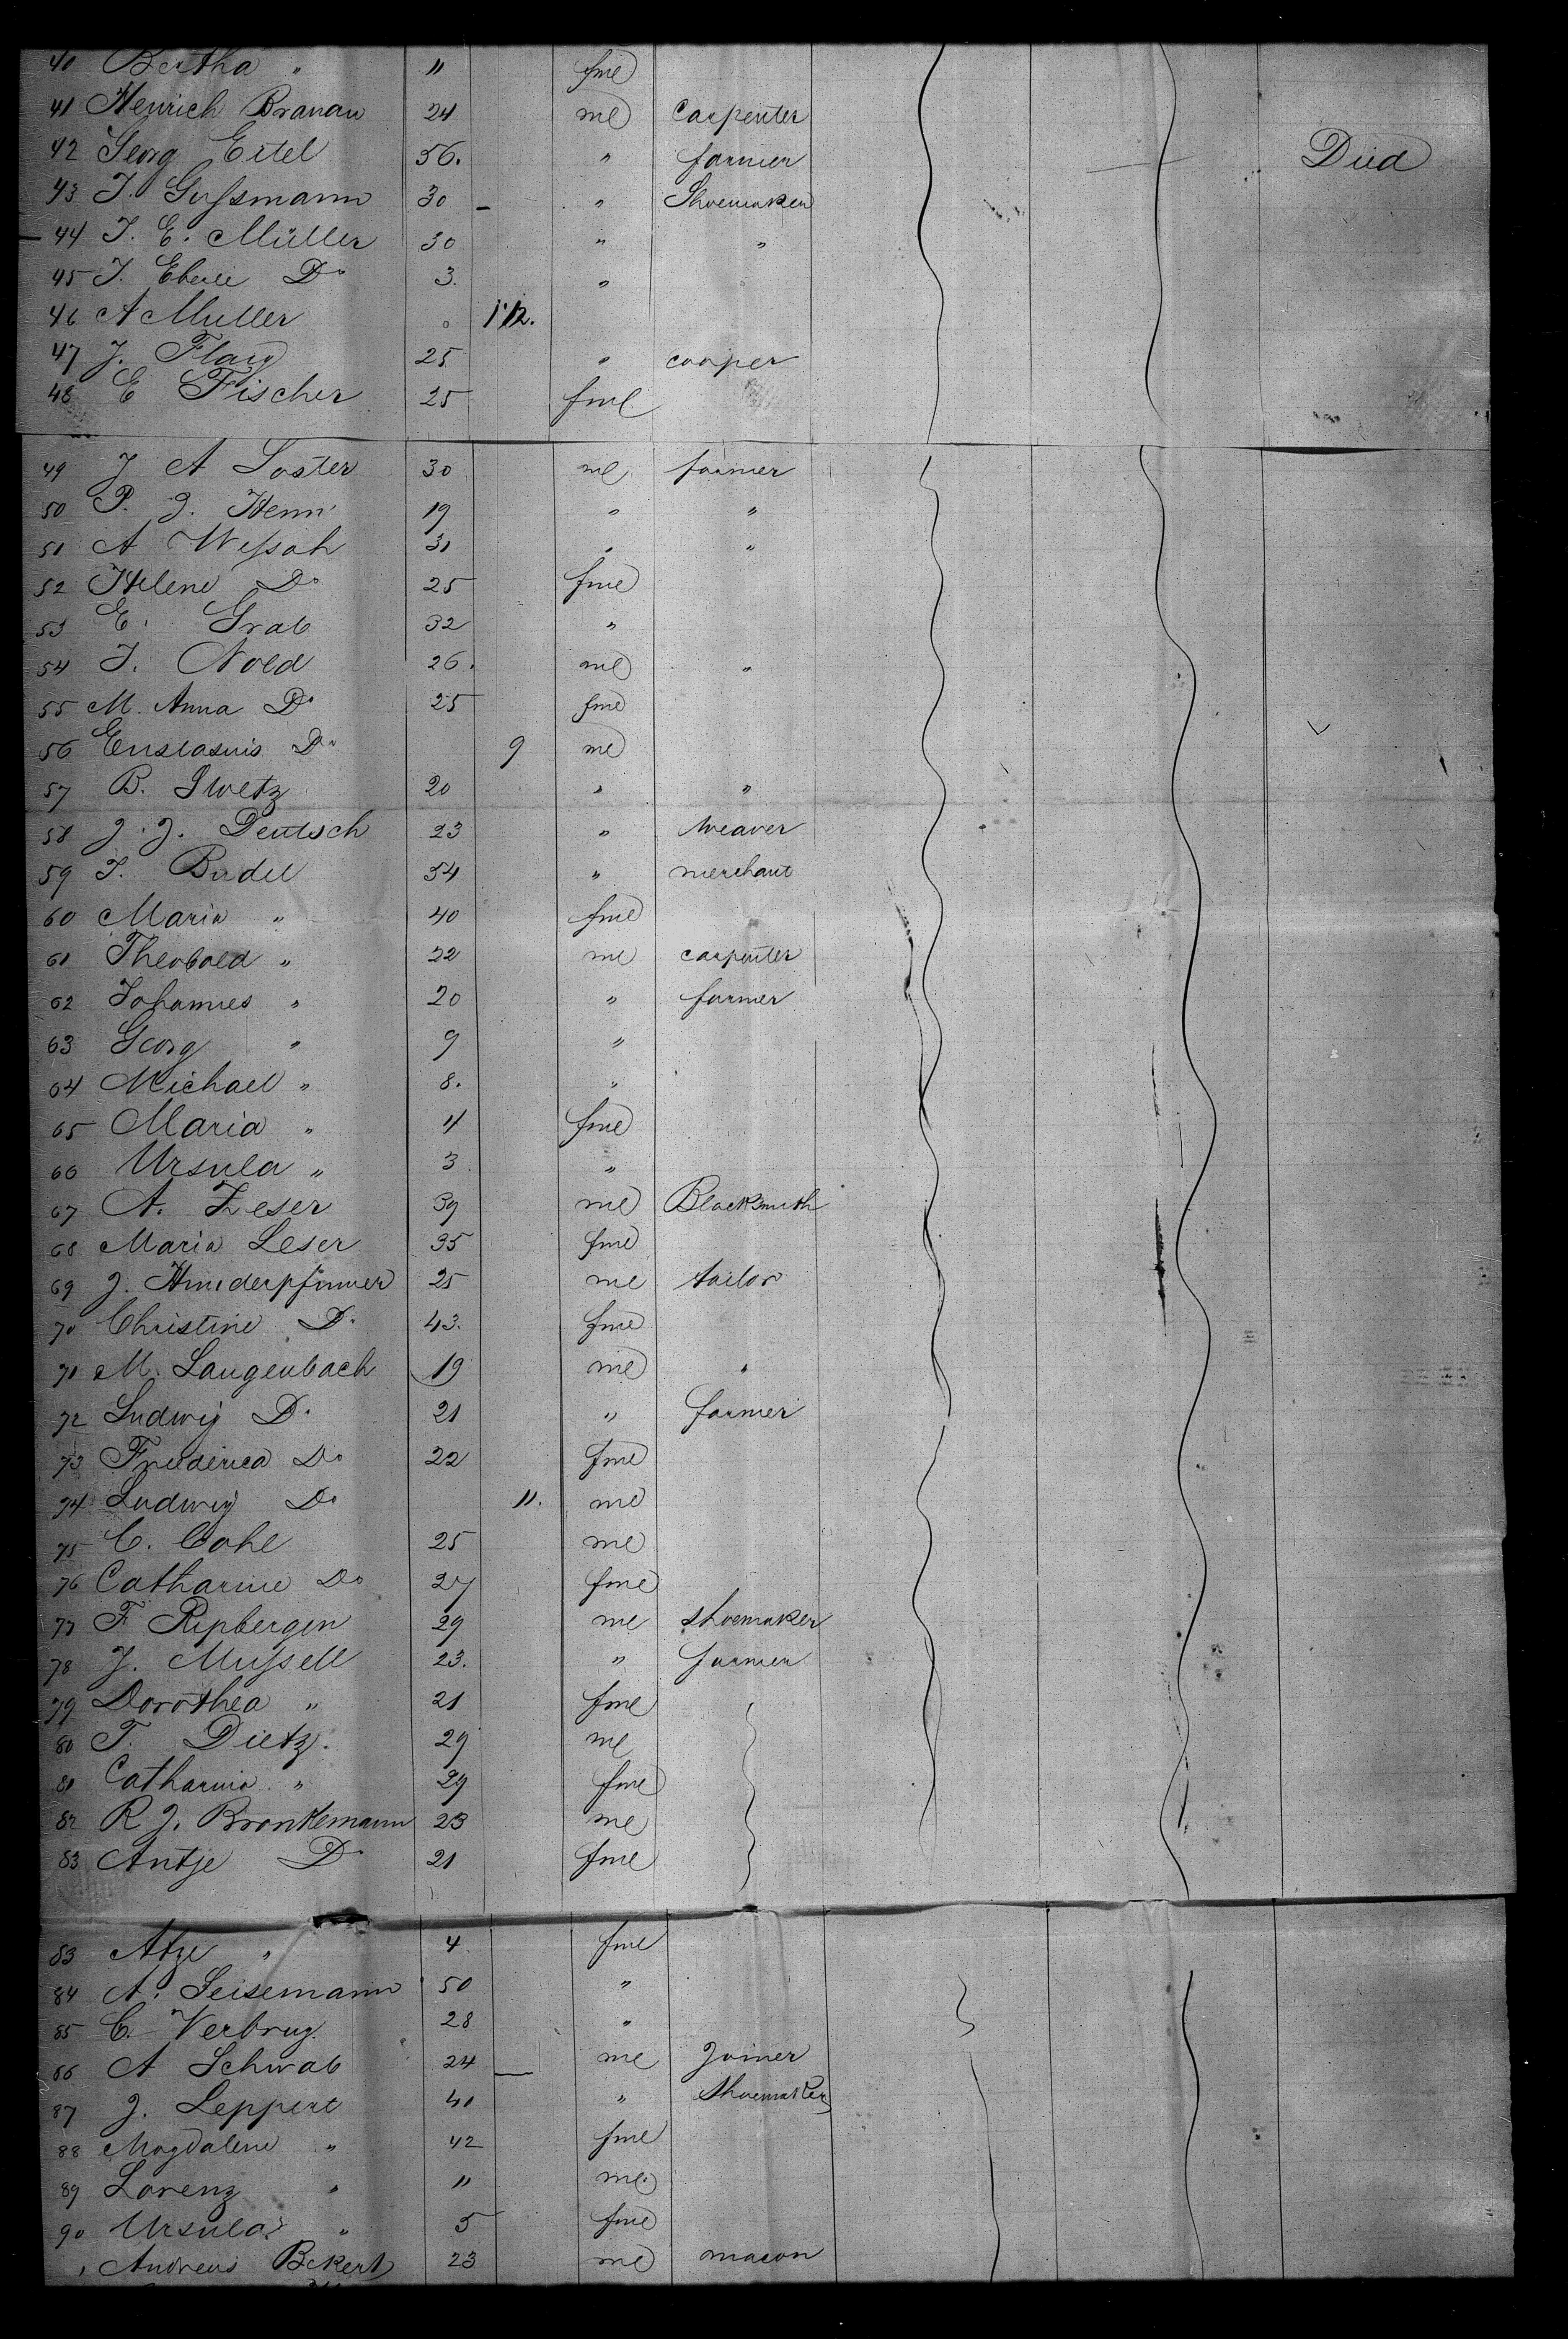 40 Bertha " 11 fme
41 Henrich Branau 24 me Carpenter
42 Georg Ertel 56. " farmer Died
43 J. Gußmann 30 - " Shoemaker
44 J. E. Müller 30 " "
45 J. Eberle Do 3. "
46 A Muller 1/12.
47 J. Flaig 25 " cooper
48 E Fischer 25 fml
49 J A Soster 30 me farmer
50 P. J. Henn 19 " "
51 A Weßah 31 " "
52 Helene Do 25 fme
53 E. Grab 32 "
54 J. Nold 26. me "
55 M. Anna Do 25 fme
56 Do 9 me
57 B. Swetz 20 " "
58 J. J. Deutsch 23 " Weaver
59 J. Budel 54 " merchant
60 Maria " 40 fme
61 Theobold " 22 me carpenter
62 Johannes " 20 " farmer
63 Georg " 9 "
64 Michael " 8. "
65 Maria " 4 fme
66 Ursula " 3 "
67 A. Leser 39 me Blacksmith
68 Maria Leser 35 fme
69 J. Hinderpfinner 25 me tailor
70 Christine Do 43. fme
71 M. Langenbach 19 me "
72 Ludwig Do 21 " farmer
73 Friederica Do 22 fme
74 Ludwig Do 11. me
75 C. Cohl 25 me
76 Catharine Do 27 fme
77 F Ripbergen 29 me shoemaker
78 J. Mußell 23. " farmer
79 Dorothea " 21 fme
80 T. Dietz. 29 me
81 Catharina " 29 fme
82 R J. Bronkemann 23 me
83 Antje Do 21 fme
83 Atze " 4 fme
84 A. Leisemann 50 "
85 C. Verbrug. 28 "
86 A Schwab 24 me Joiner
87 J. Leppert 41 " Shoemaker
88 Magdalene " 42 fme
89 Lorenz " 11 me
90 Ursula " 5 fme
Andreas Bekert 23 me mason